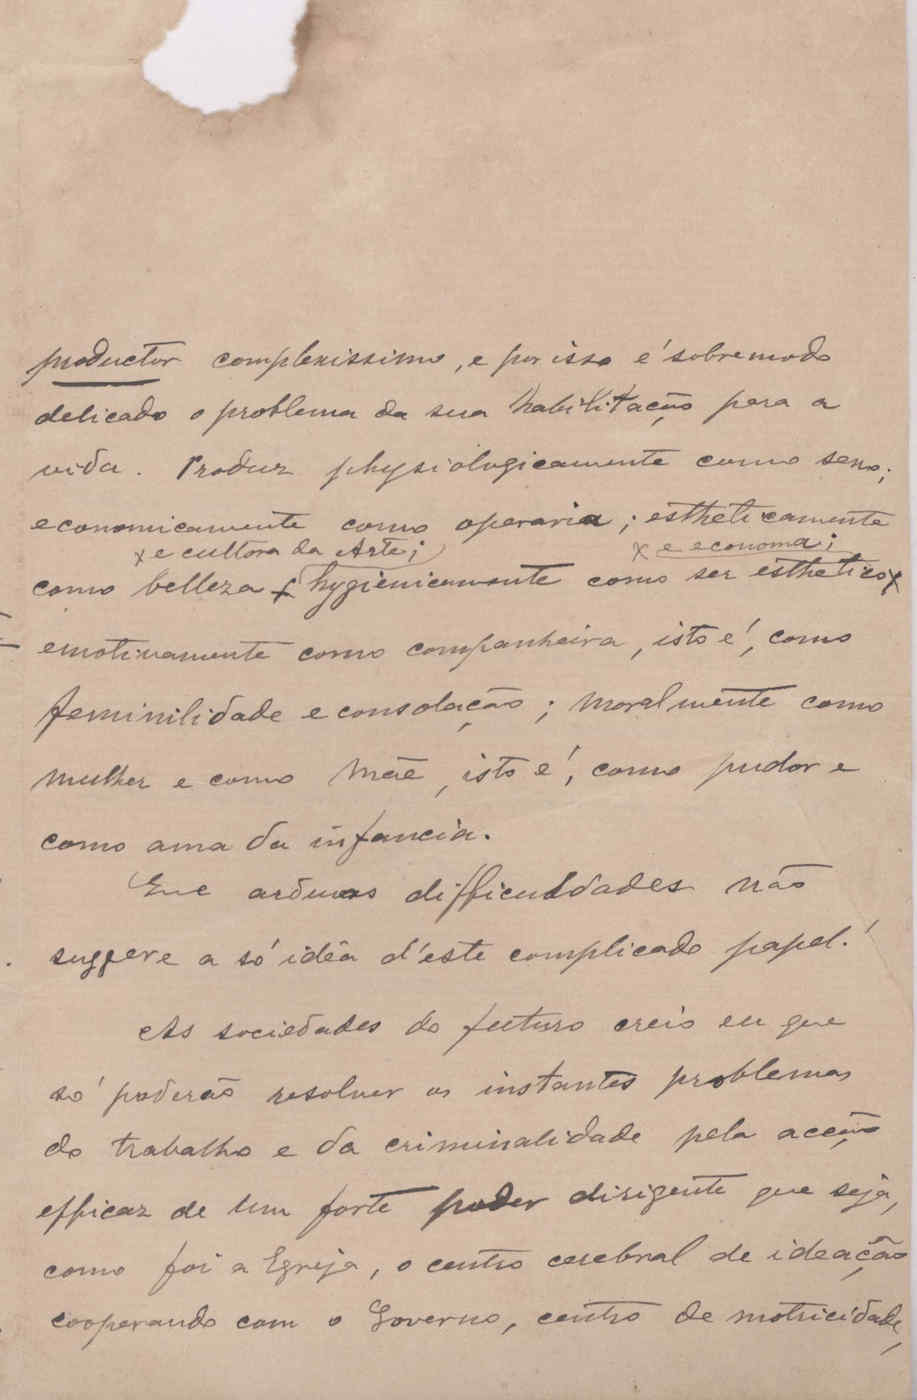 productor complexissimo, e por isso é sobremodo
delicado o problema da sua habilitação para a
vida. Produz physiologicamente como sexo;
economicamente como operaria; estheticamente
x e cultora da Arte; x e economa;
como belleza x hygienicamente como ser esthetico x
emotivamente como companheira, isto é, como
feminilidade e consolação; moralmente como
mulher e como mãe, isto é, como pudor e
como ama da infancia.
Que arduas difficuldades não
suggere a só idéa d'este complicado papel!
As sociedades do futuro creio eu que
só poderão resolver os instantes problemas
do trabalho e da criminalidade pela acção
efficaz de um forte poder dirigente que seja,
como foi a Egreja, o centro cerebral de ideação
cooperando com o Governo, centro de motricidade,